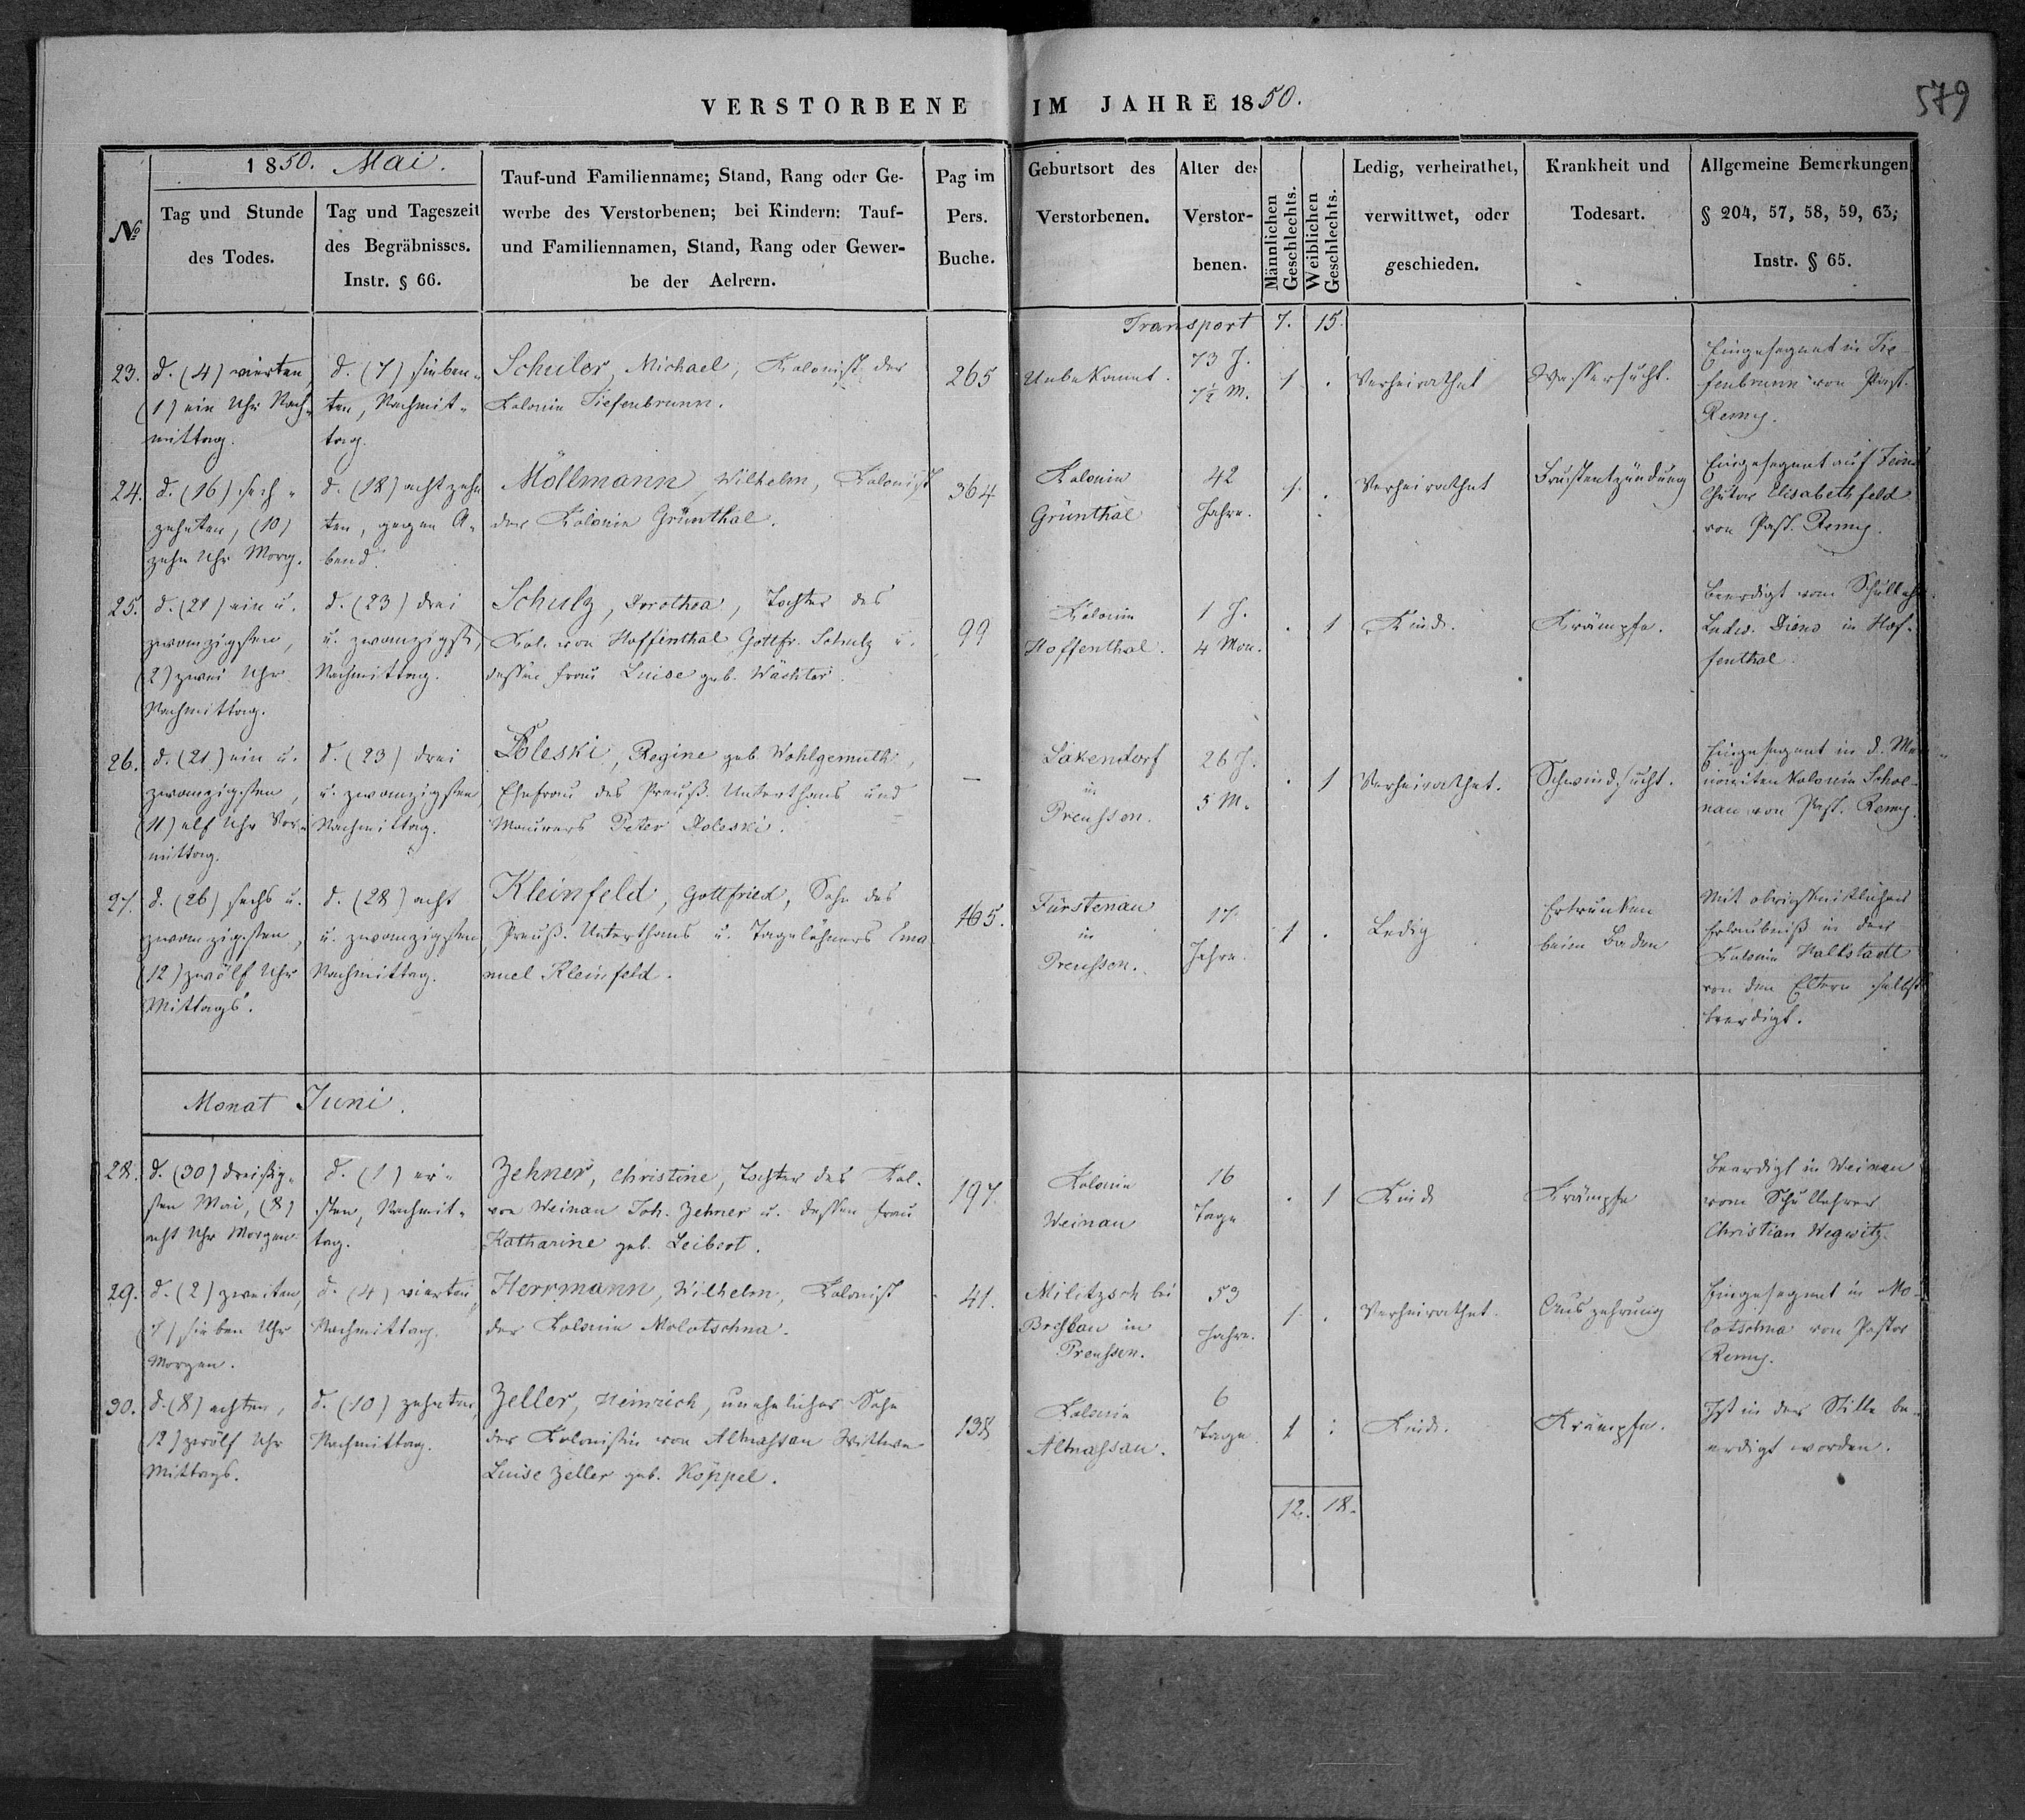 VERSTORBENE IM JAHRE 1850.
579
1850. Mai.
№
Tag und Stunde
des Todes.
Tag und Tageszeit
des Begräbnisses.
Instr. § 66.
Tauf-und Familienname; Stand, Rang oder Ge-
werbe des Verstorbenen; bei Kindern: Tauf-
und Familiennamen, Stand, Rang oder Gewer-
be der Aelrern.
Pag im
Pers.
Buche.
Geburtsort des
Verstorbenen.
Alter der
Verstor-
benen.
Männlichen
Geschlechts.
Weiblichen
Geschlechts.
Ledig, verheirathet,
verwittwet, oder
geschieden.
Krankheit und
Todesart.
Allgemeine Bemerkungen
§ 204, 57, 58, 59, 63;
Instr. § 65.
Transport 7. 15.
23.
d. (4) vierten,
(1) ein Uhr Nach-
mittag.
d. (7) sieben-
ten, Nachmit-
tag.
Schuler, Michael, Kolonist der
Kolonie Tiefenbrunn.
265
Unbekannt.
73 J.
7½ M.
1 .
Verheirathet
Wassersucht.
Eingesegnet in Tie-
fenbrunn von Past.
Remy.
24.
d. (16) sech-
zehnten, (10)
zehn Uhr Morg.
d. (18) achtzehn
ten, gegen A-
bend.
Möllmann, Wilhelm, Kolonist
der Kolonie Grünthal.
364
Kolonie
Grünthal
42
Jahre.
1. .
Verheirathet
Brustentzündung
Eingesegnet auf
Chutor Elisabethfeld
von Past. Remy.
25.
d. (21) ein u.
zwanzigsten,
(2) zwei Uhr
Nachmittag.
d. (23) drei
u. zwanzigst,
Nachmittag.
Schulz, Dorothea, Tochter des
Kol. von Hoffenthal Gottfr. Schulz u.
dessen Frau Luise geb. Wächter.
99
Kolonie
Hoffenthal.
1 J.
4 Mon.
. 1
Kind.
Krämpfe.
Beerdigt vom Schulleh.
Ludw. in Hof-
fenthal.
26.
d. (21) ein u.
zwanzigsten,
(11) elf Uhr Vor-
mittag.
d. (23) drei
u. zwanzigsten,
Nachmittag.
Regine geb. Wohlgemuth,
Ehefrau des Preuß. Unterthans und
Maurers Peter
—
Lakendorf
in
Preussen.
26 J.
5 M.
. 1
Verheirathet.
Schwindsucht.
Eingesegnet in d. Men-
noniten Kolonie Schoe-
nau von Past. Remy.
27.
d. (26) sechs u.
zwanzigsten,
(12) zwölf Uhr
Mittags.
d. (28) acht
u. zwanzigsten
Nachmittag.
Kleinfeld, Gottfried, Sohn des
Preuß. Unterthans u. Tagelöhners Ema
nuel Kleinfeld.
165.
Fürstenau
in
Preussen.
17
Jahre.
1 .
Ledig
Ertrunken
beim Baden
Mit obrigkeitlicher
Erlaubniß in der
Kolonie Halbstadt
von den Eltern selbst
beerdigt.
Monat Juni.
28.
d. (30) dreißig-
sten Mai, (8)
acht Uhr Morgen.
d. (1) er-
sten, Nachmit-
tag.
Zehner, Christine, Tochter des Kol.
von Weinau Joh. Zehner u. dessen Frau
Katharine geb. Leibert.
197.
Kolonie
Weinau
16
Tage
. 1
Kind
Krämpfe
Beerdigt in Weinau
vom Schullehrer
Christian Wegwitz.
29.
d. (2) zweiten,
(7) sieben Uhr
Morgen.
d. (4) vierten,
Nachmittag.
Herrmann, Wilhelm, Kolonist
der Kolonie Molotschna.
41.
Militzsch bei
Breslau in
Preussen.
53
Jahre.
1. .
Verheirathet.
Auszehrung
Eingesegnet in Mo-
lotschna von Pastor
Remy.
30.
d. (8) achten,
(12) zwölf Uhr
Mittags.
d. (10) zehnten,
Nachmittag.
Zeller, Heinrich, unehelicher Sohn
der Kolonistin von Altnassau Wittwe
Luise Zeller geb. Köppel.
138
Kolonie
Altnassau.
6
Tage.
1 .
Kind.
Krämpfe.
Ist in der Stille be-
erdigt worden.
12. 18.